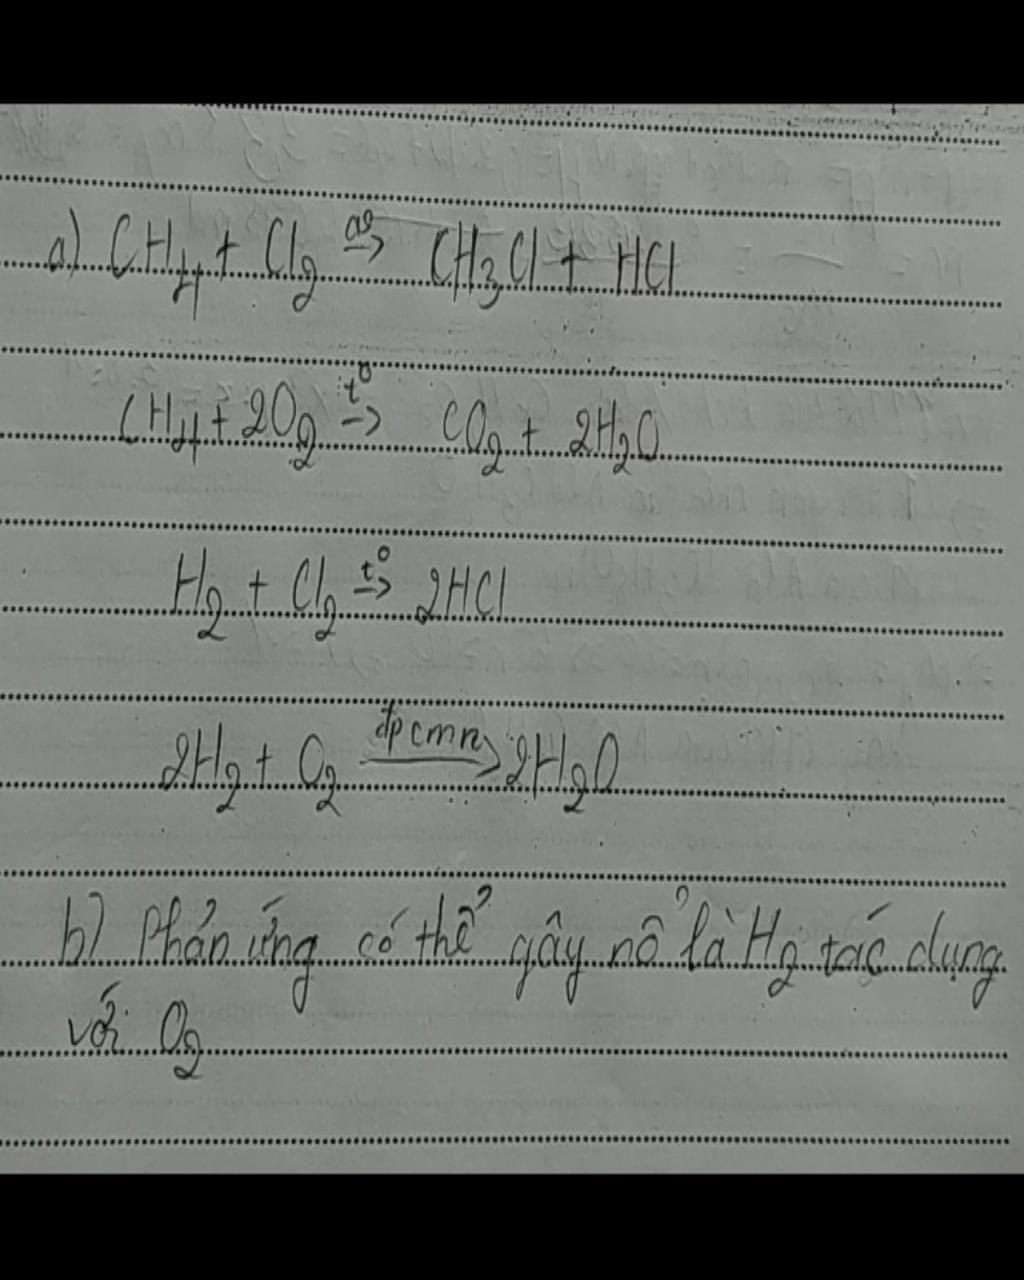 a) CH₄ + Cl₂ as→ CH₃Cl + HCl
CH₄ + 2O₂ t⁰→ CO₂ + 2H₂O
H₂ + Cl₂ t⁰→ 2HCl
2H₂ + O₂ đpcmn→ 2H₂O
b) Phản ứng có thể gây nổ là H₂ tác dụng
với O₂